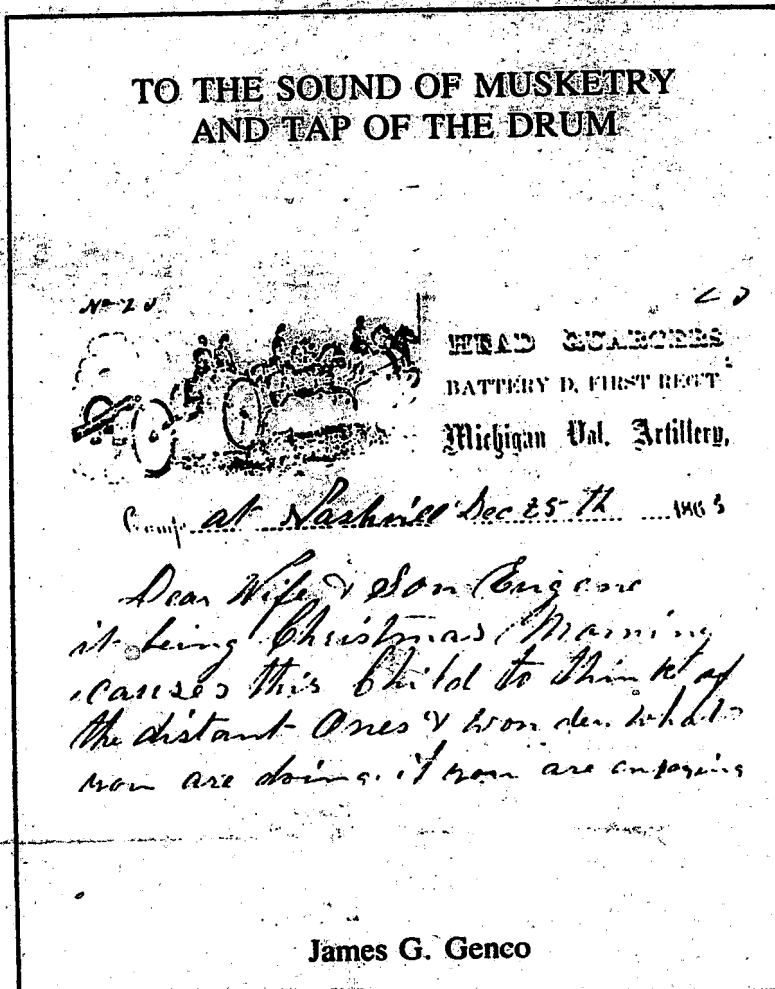 TO THE SOUND OF MUSKETRY
AND TAP OF THE DRUM
No 20
HEAD QUARTERS
BATTERY D, FIRST REG'T
Michigan Vol. Artillery,
Camp at Nashville Dec 25th 1863
Dear Wife & Son Eugene
it being Christmas Morning
causes this Child to think of
the distant Ones & wonder what
you are doing. if you are enjoying
James G. Genco